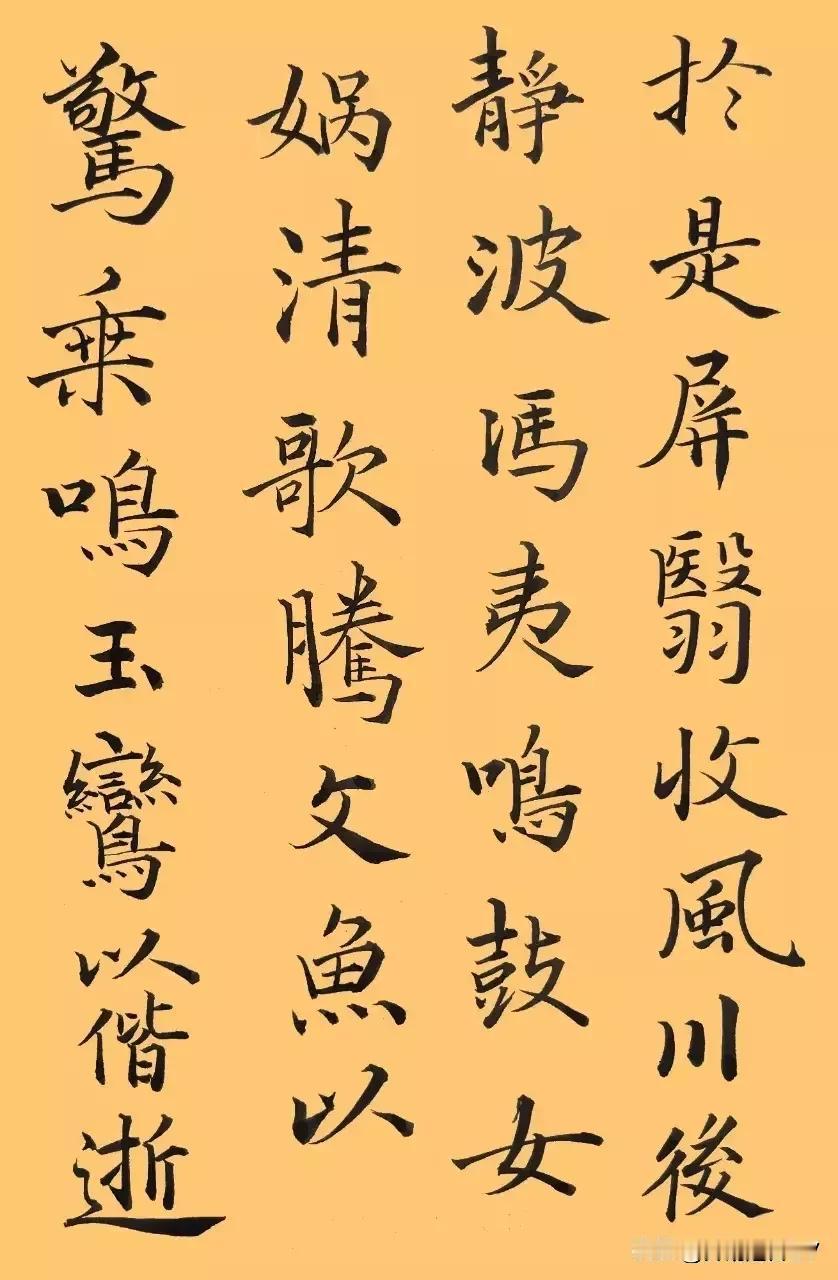 於是屏翳收風川後
靜波馮夷鳴鼓女
娲清歌騰文魚以
驚乗鳴玉鸞以偕逝